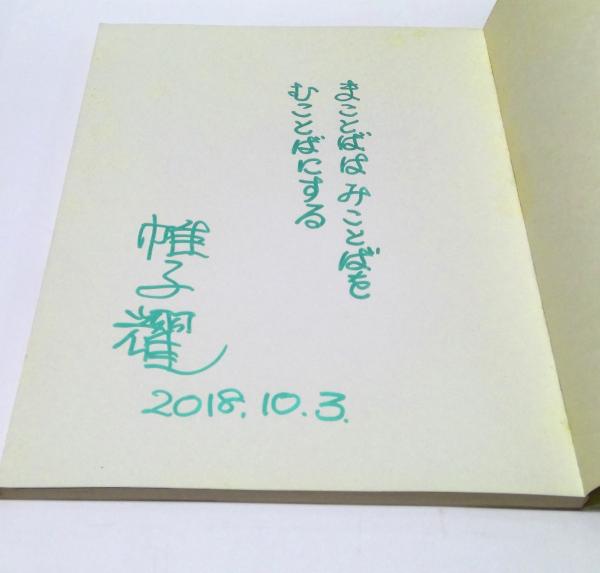 まことばはみことばを
むことばにする
帷子耀
2018.10.3.